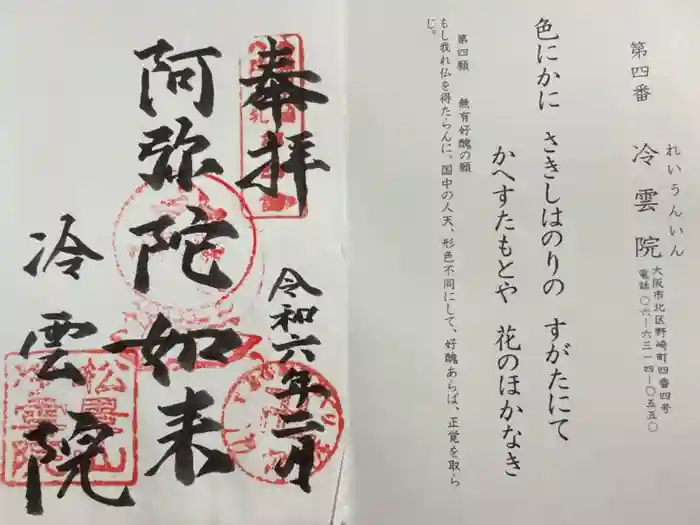 第四番　冷雲院
れいうんいん
大阪市北区野崎町四番四号
電話〇六-六三一四-〇五五〇
色にかに　さきしはのりの　すがたにて
かへすたもとや　花のほかなき
第四願　無有好醜の願
もし我れ仏を得たらんに、国中の人天、形色不同にして、好醜あらば、正覚を取ら
じ。
奉拝
令和六年二月
阿弥陀如来
冷雲院